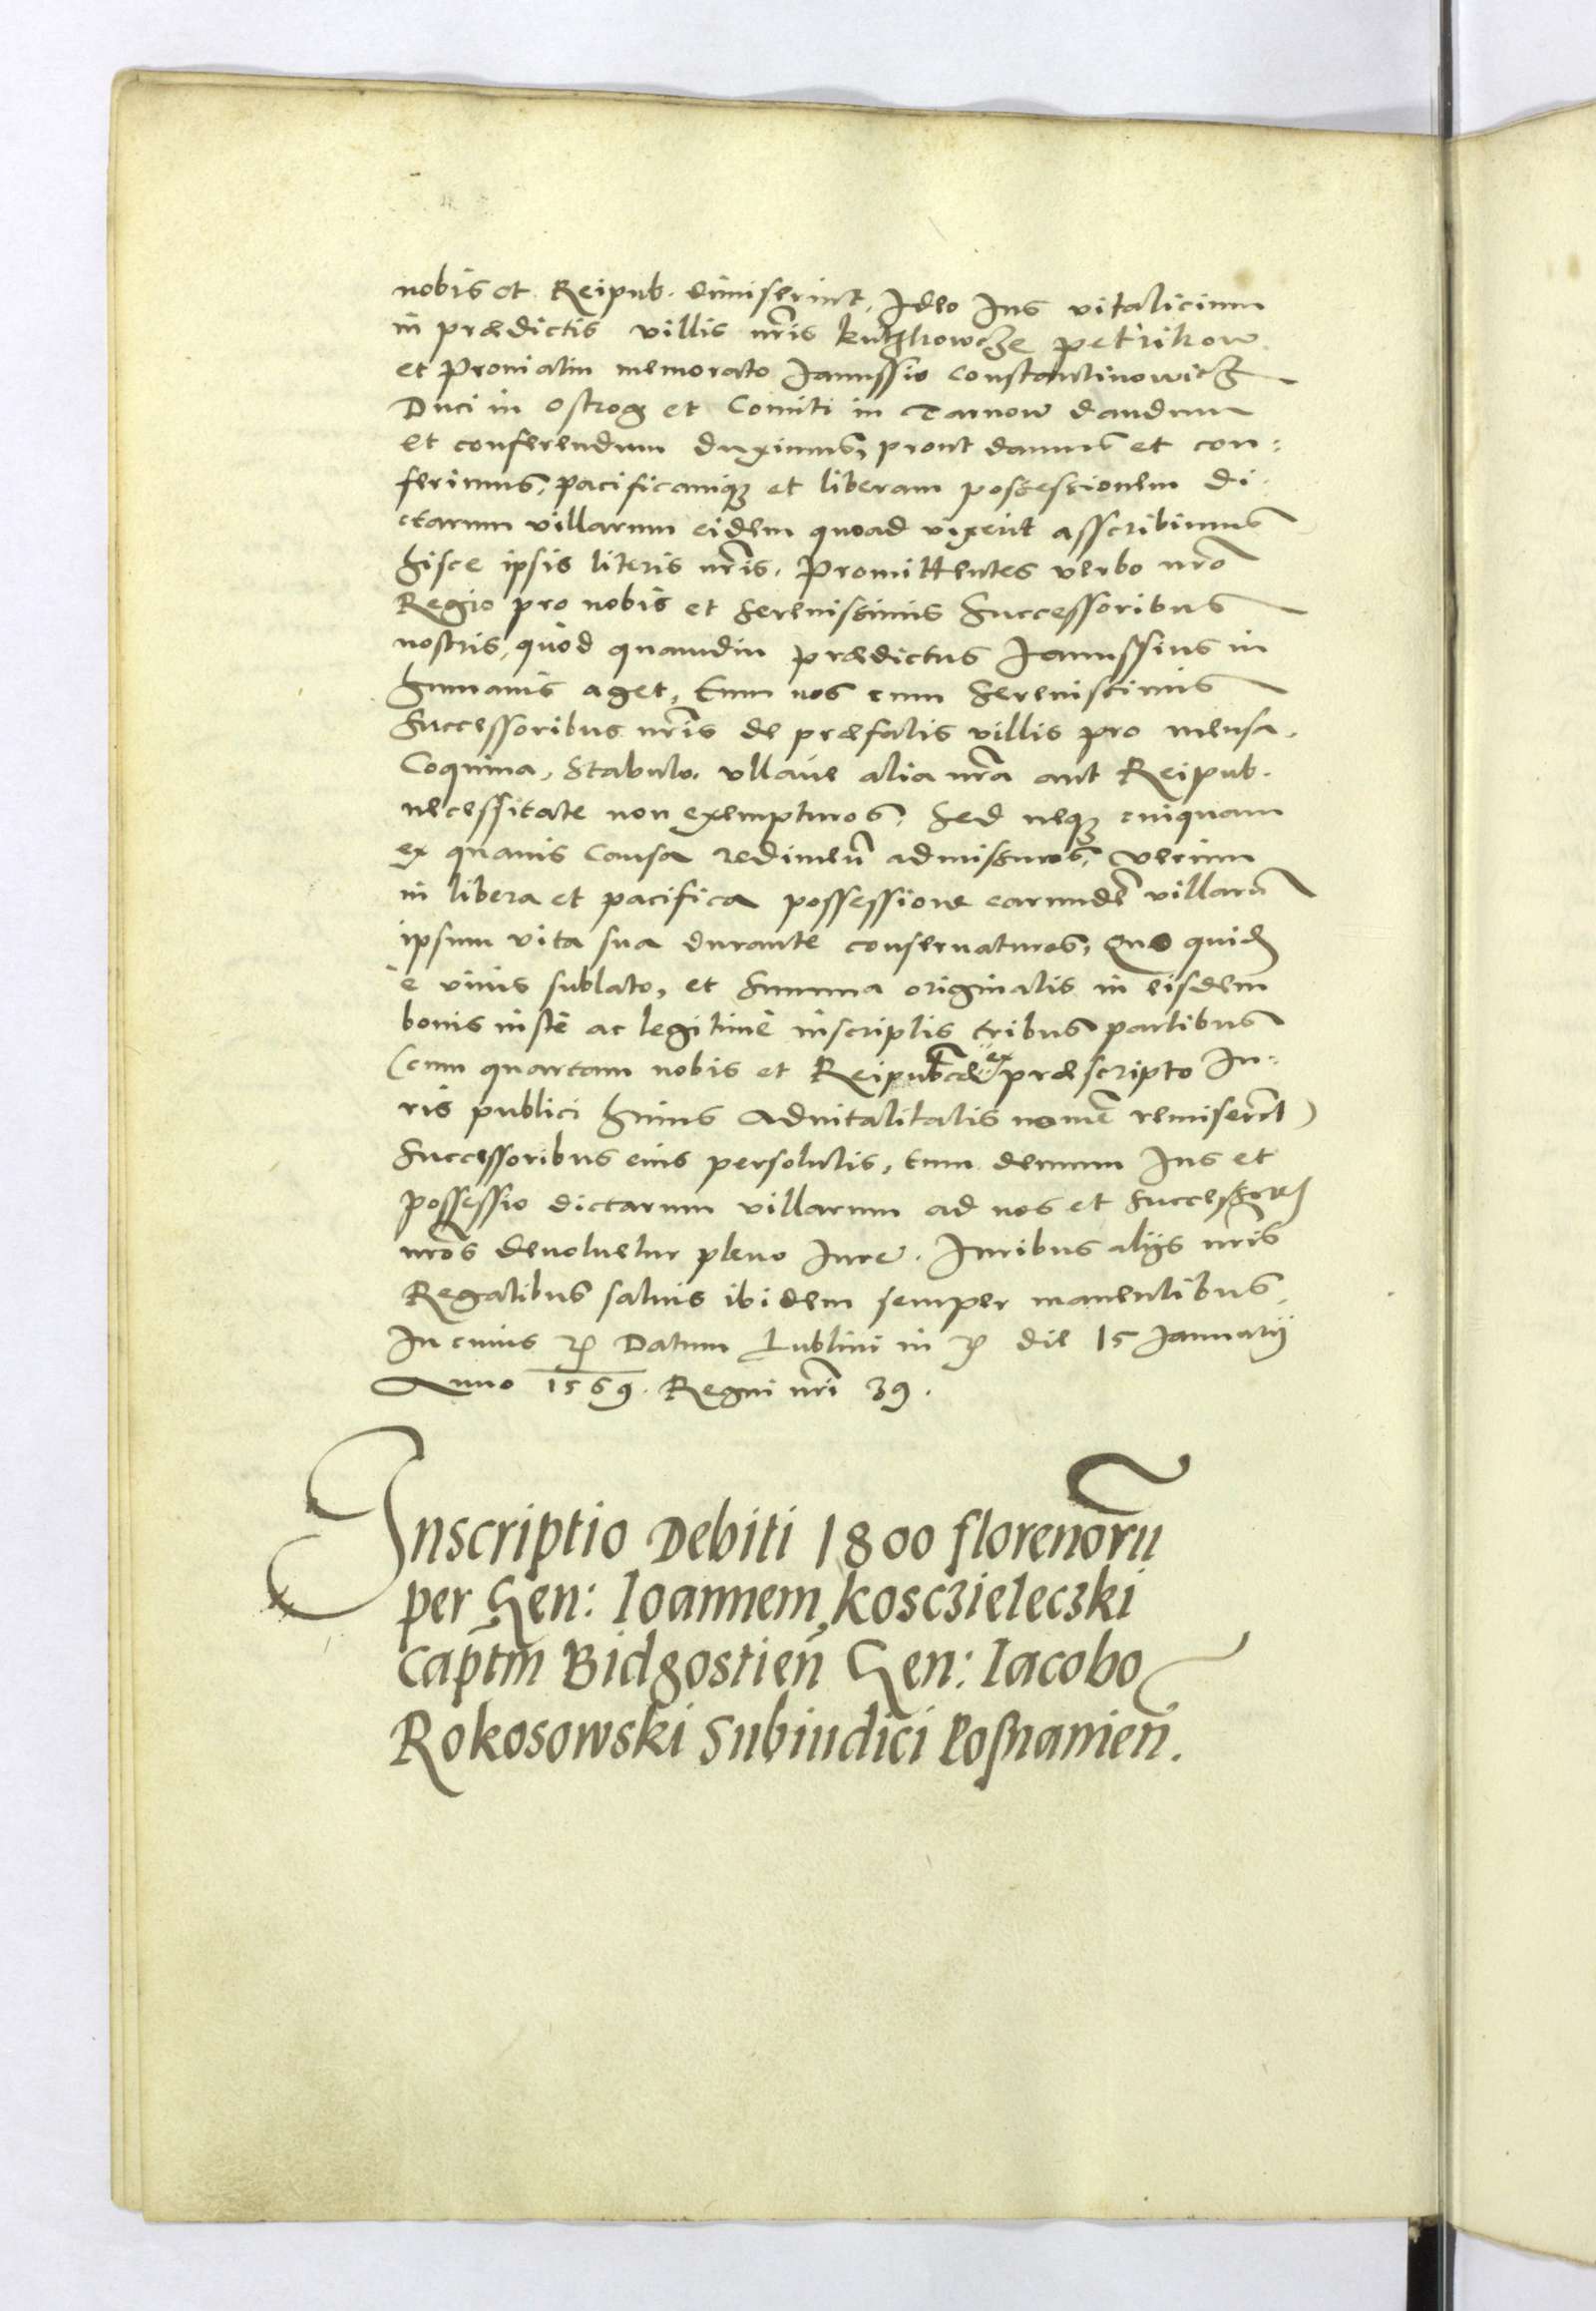 nobis et Reipub. dimiserint, Ideo Ius vitalicium
in prædictis villis nr̃is kutzkowcze petrikow
et Proniatin memorato Janussio Constantinowitz
Duci in Ostrog et Comiti in Tarnow dandum
et conferendum duximus, prout damus et con:
ferimus, pacificamq; et liberam possessionem di:
ctarum villarum eidem quoad vixerit asscribimus
hisce ipsis literis nr̃is. Promittentes verbo nr̃o
Regio pro nobis et Serenissimis Successoribus
nostris, quòd quamdiu prædictus Janussius in
humanis aget, Eum nos cum Serenissimis
Successoribus nr̃is de præfatis villis pro mensa,
Coquina, Stabulo, vllaue alia nr̃a aut Reipub.
necessitate non exempturos, Sed neq; cuiquam
ex quauis Causa redimen̄ admissuros, verum
in libera et pacifica possessione earundē villarū
ipsum vita sua durante conseruaturos, Quo quidē
è viuis sublato, et Summa originalis in eisdem
bonis iustè ac legitimè inscriptis tribus partibus
(cum quartam nobis et Reipub̄cæ ex præscripto Iu:
ris publici huius Aduitalitatis nomē remiserit)
Successoribus eius persolutis, tum demum Ius et
possessio dictarum villarum ad nos et Successores
nr̃os deuoluetur pleno Iure. Iuribus alijs nr̃is
Regalibus saluis ibidem semper manentibus.
In cuius rei Datum Lublini in die 15 Januarij
Anno 1569. Regni nr̃i 39.
Inscriptio Debiti 1800 florenorū
per Gen: Ioannem Kosczieleczki
Captm̄ Bidgostien̄ Gen: Iacobo
Rokosowski Subiudici Posnanien̄.